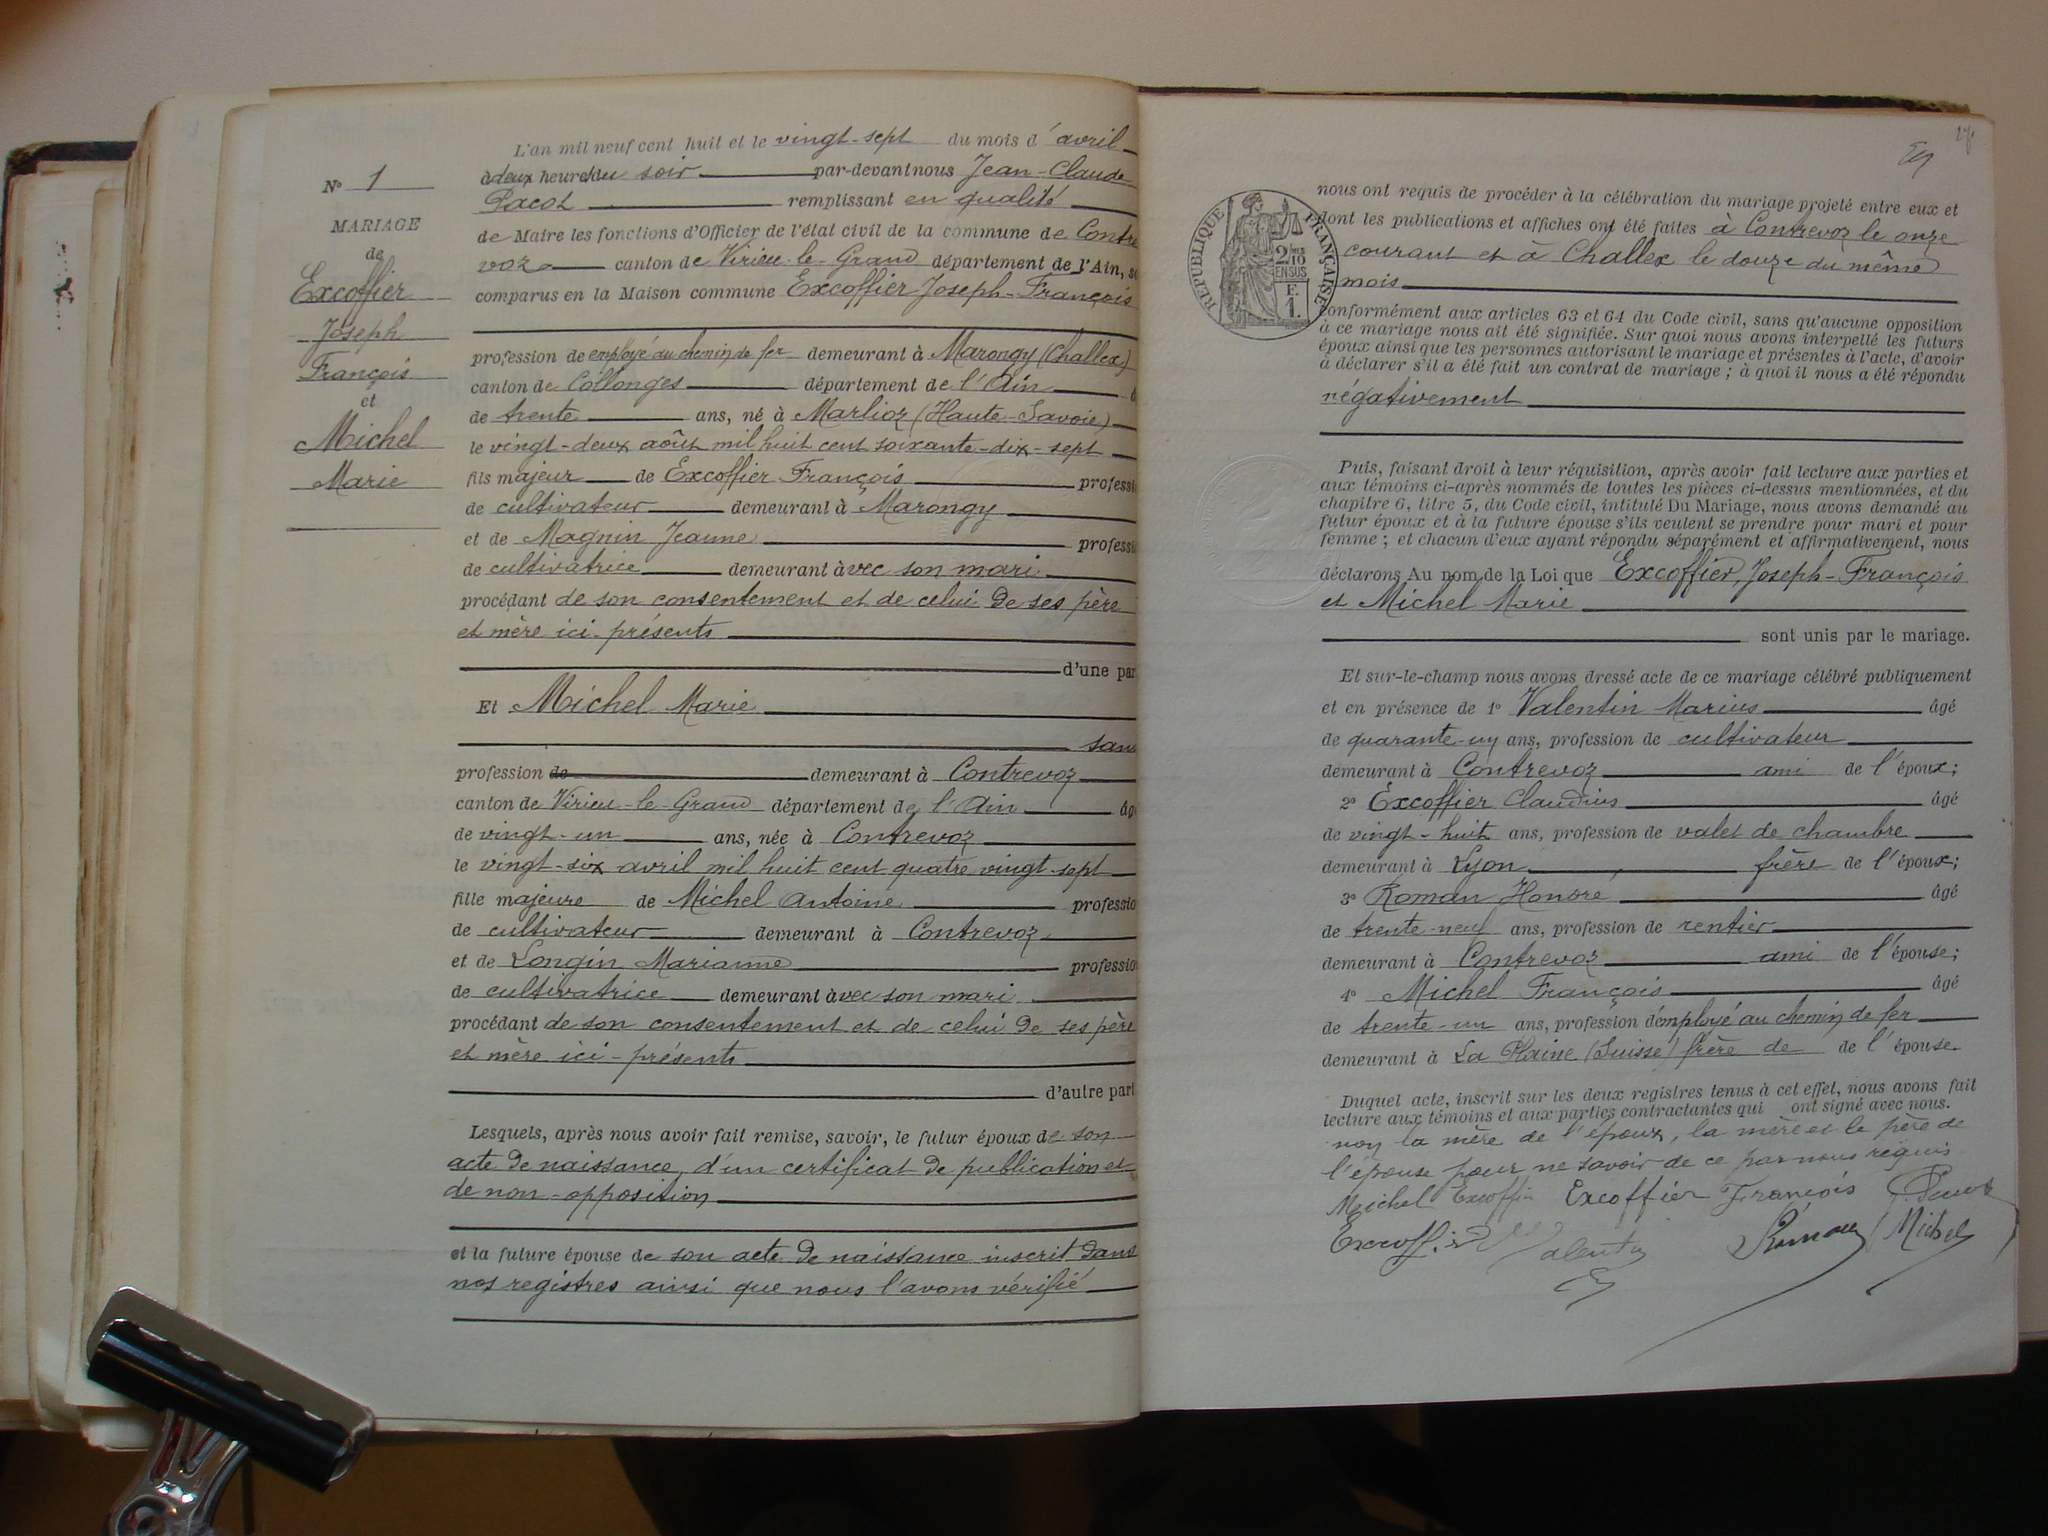 L'an mil neuf cent huit et le vingt-sept du mois d'avril
à deux heures du soir par-devant nous Jean-Claude
Pacot remplissant en qualité
de Maire les fonctions d'Officier de l'état civil de la commune de Contre
voz canton de Virieu-le-Grand département de l'Ain, so
comparus en la Maison commune Excoffier Joseph-François
profession de employé du chemin de fer demeurant à Marongy (Challex)
canton de Collonges département de l'Ain
de trente ans, né à Marlioz (Haute-Savoie)
le vingt-deux août mil huit cent soixante-dix-sept
fils majeur de Excoffier François professi
de cultivateur demeurant à Marongy
et de Magnin Jeanne professi
de cultivatrice demeurant avec son mari
procédant de son consentement et de celui de ses père
et mère ici-présents
d'une par
Et Michel Marie
sans
profession de demeurant à Contrevoz
canton de Virieu-le-Grand département de l'Ain âgé
de vingt-un ans, née à Contrevoz
le vingt-six avril mil huit cent quatre vingt-sept
fille majeure de Michel Antoine professio
de cultivateur demeurant à Contrevoz
et de Longin Marianne professio
de cultivatrice demeurant avec son mari
procédant de son consentement et de celui de ses père
et mère ici-présents
d'autre part
Lesquels, après nous avoir fait remise, savoir, le futur époux de son
acte de naissance, d'un certificat de publication et
de non-opposition
et la future épouse de son acte de naissance inscrit dans
nos registres ainsi que nous l'avons vérifié
N° 1
MARIAGE
de
Excoffier
Joseph
François
et
Michel
Marie
RÉPUBLIQUE FRANÇAISE
2/10
EN SUS
F.
1.
nous ont requis de procéder à la célébration du mariage projeté entre eux et
dont les publications et affiches ont été faites à Contrevoz le onze
courant et à Challex le douze du même
mois
conformément aux articles 63 et 64 du Code civil, sans qu'aucune opposition
à ce mariage nous ait été signifiée. Sur quoi nous avons interpellé les futurs
époux ainsi que les personnes autorisant le mariage et présentes à l'acte, d'avoir
à déclarer s'il a été fait un contrat de mariage ; à quoi il nous a été répondu
négativement
Puis, faisant droit à leur réquisition, après avoir fait lecture aux parties et
aux témoins ci-après nommés de toutes les pièces ci-dessus mentionnées, et du
chapitre 6, titre 5, du Code civil, intitulé Du Mariage, nous avons demandé au
futur époux et à la future épouse s'ils veulent se prendre pour mari et pour
femme ; et chacun d'eux ayant répondu séparément et affirmativement, nous
déclarons Au nom de la Loi que Excoffier Joseph-François
et Michel Marie
sont unis par le mariage.
Et sur-le-champ nous avons dressé acte de ce mariage célébré publiquement
et en présence de 1° Valentin Marius âgé
de quarante-un ans, profession de cultivateur
demeurant à Contrevoz ami de l'époux;
2° Excoffier Claudius âgé
de vingt-huit ans, profession de valet de chambre
demeurant à Lyon frère de l'époux;
3° Roman Honoré âgé
de trente-neuf ans, profession de rentier
demeurant à Contrevoz ami de l'épouse;
4° Michel François âgé
de trente-un ans, profession d'employé au chemin de fer
demeurant à La Plaine (Suisse) frère de de l'épouse.
Duquel acte, inscrit sur les deux registres tenus à cet effet, nous avons fait
lecture aux témoins et aux parties contractantes qui ont signé avec nous.
non la mère de l'époux, la mère et le père de
l'épouse pour ne savoir de ce par nous requis
Michel Excoffier Excoffier François Pacot
Excoffier Valentin Roman Michel